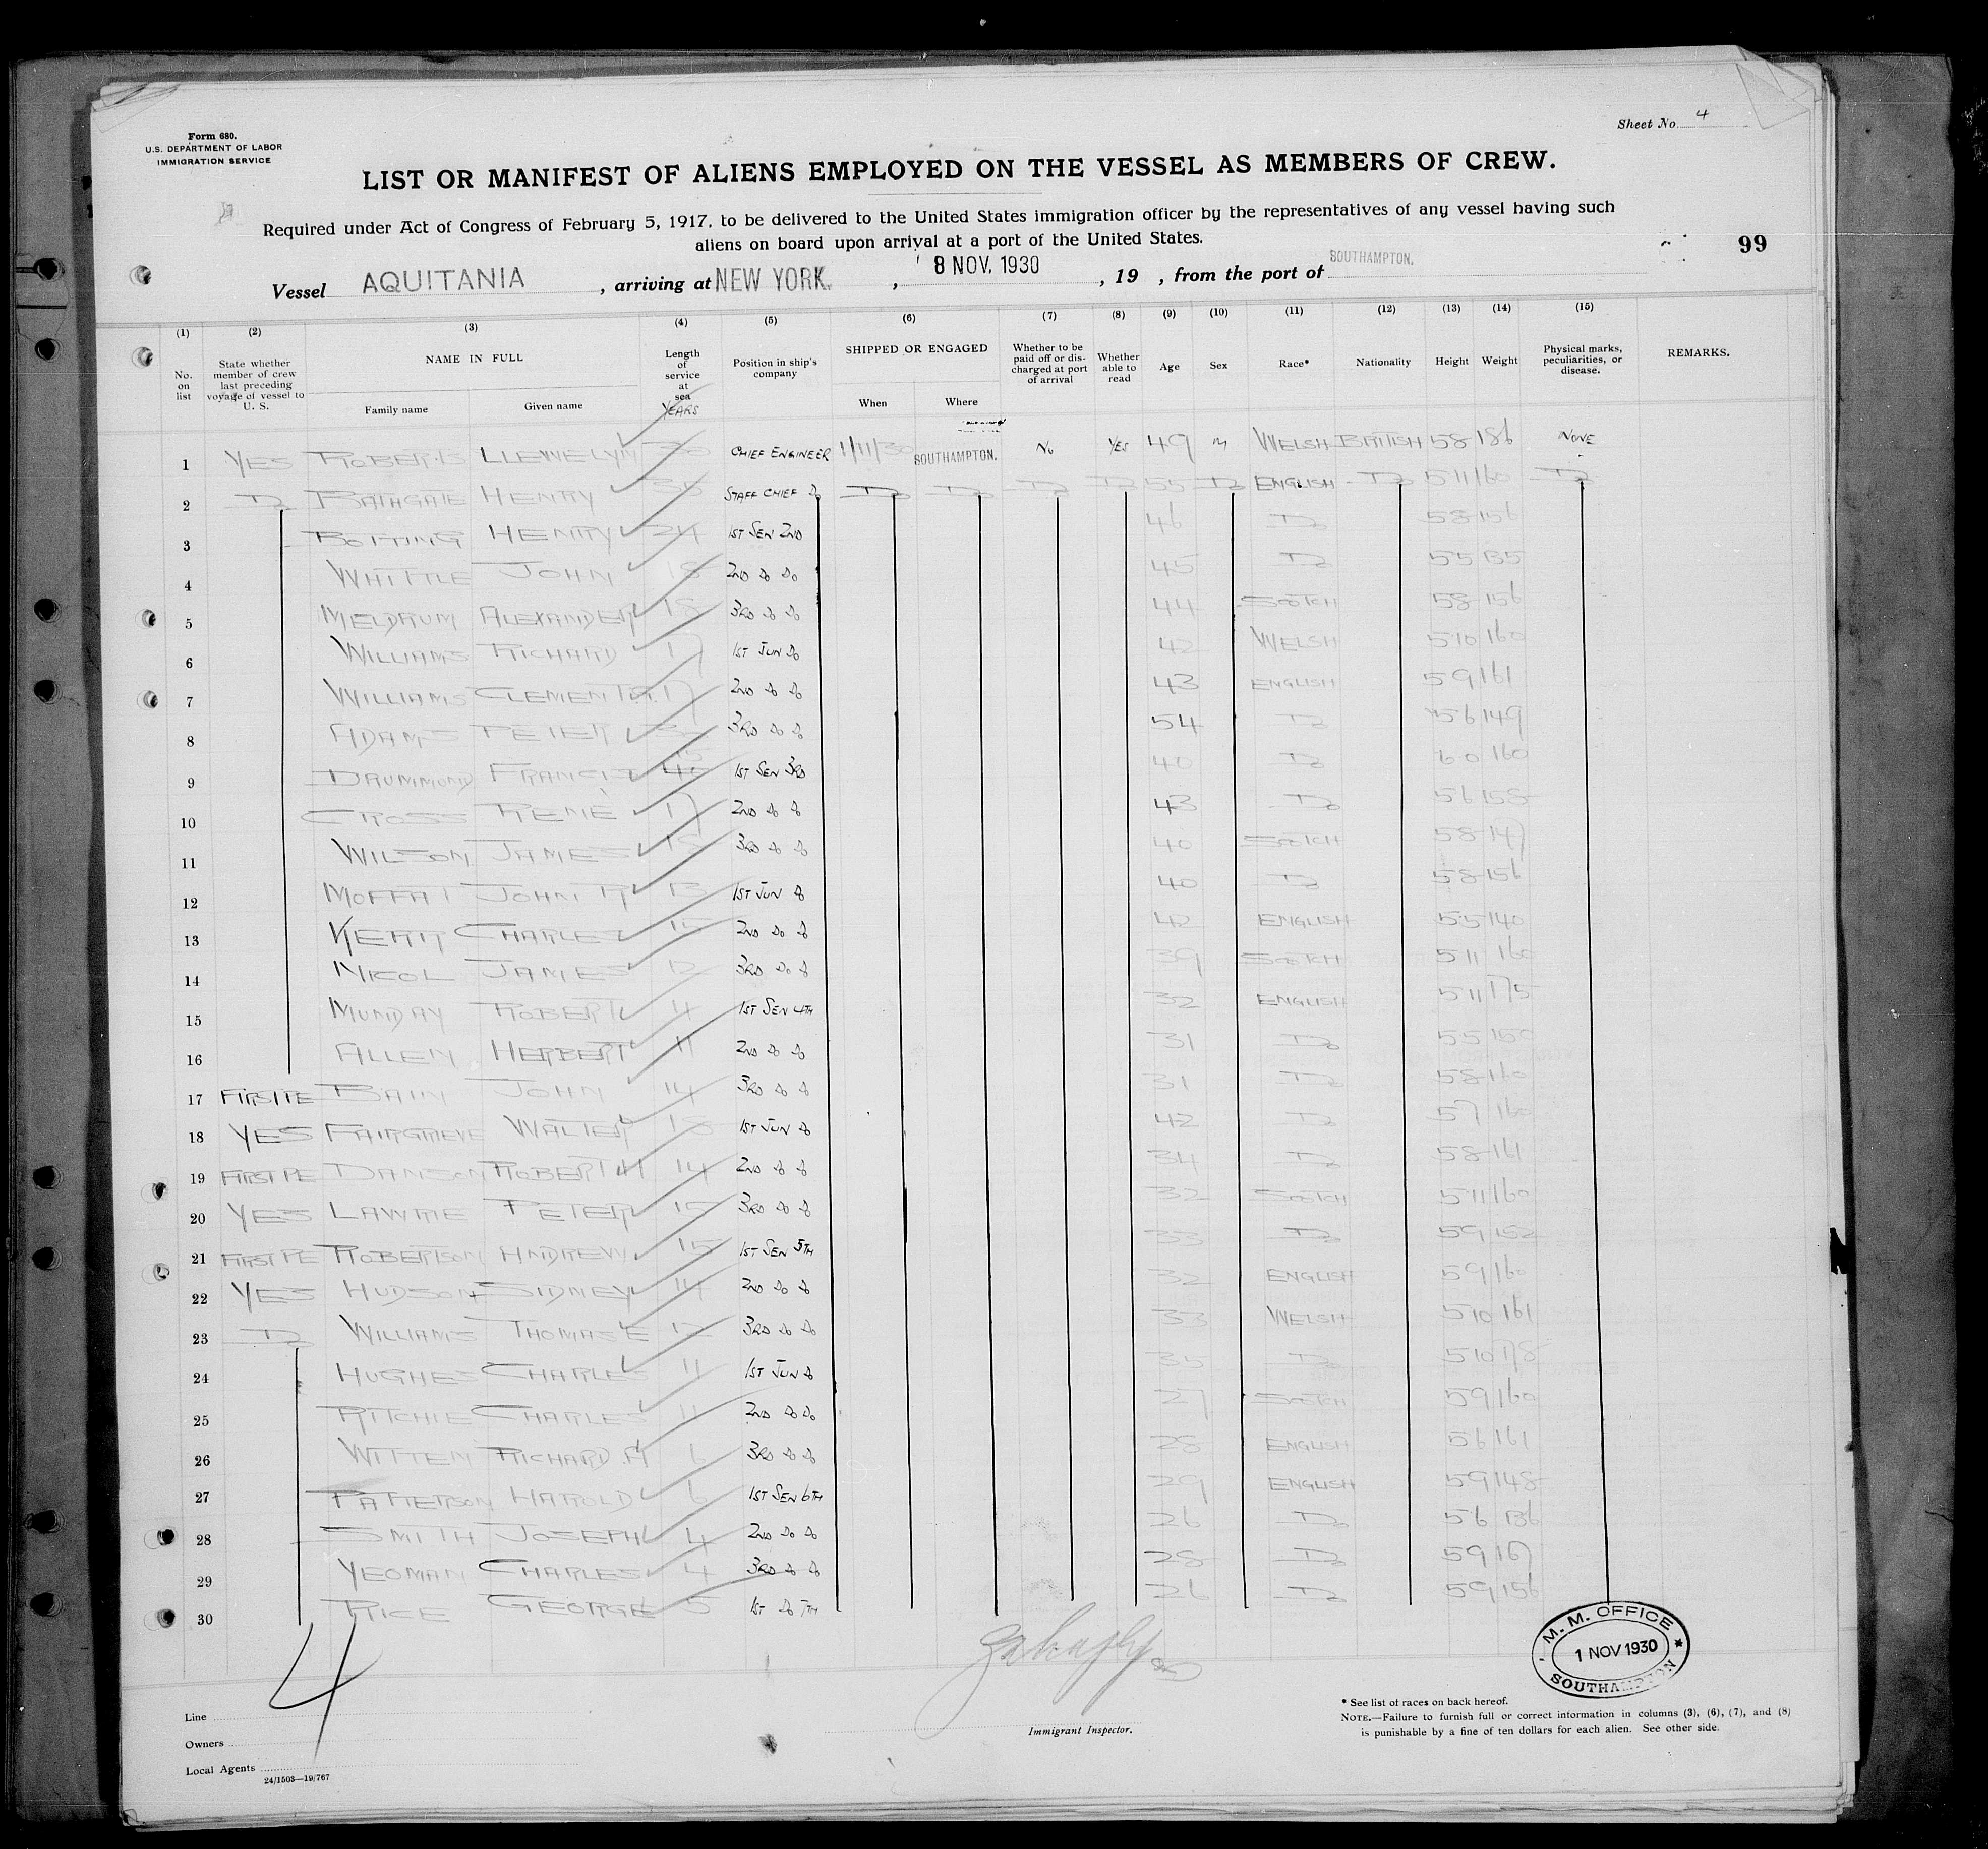 Form 680.
U.S. DEPARTMENT OF LABOR
IMMIGRATION SERVICE
Sheet No. 4
LIST OR MANIFEST OF ALIENS EMPLOYED ON THE VESSEL AS MEMBERS OF CREW.
Required under Act of Congress of February 5, 1917, to be delivered to the United States immigration officer by the representatives of any vessel having such
aliens on board upon arrival at a port of the United States.
99
Vessel AQUITANIA, arriving at NEW YORK, 8 NOV. 1930, 19 , from the port of SOUTHAMPTON.
(1) (2) (3) (4) (5) (6) (7) (8) (9) (10) (11) (12) (13) (14) (15)
No. on list State whether member of crew last preceding voyage of vessel to U. S. NAME IN FULL Family name Given name Length of service at sea YEARS Position in ship's company SHIPPED OR ENGAGED When Where Whether to be paid off or discharged at port of arrival Whether able to read Age Sex Race* Nationality Height Weight Physical marks, peculiarities, or disease. REMARKS.
1 YES ROBERTS LLEWELYN CHIEF ENGINEER 1/11/30 SOUTHAMPTON. No YES 49 M WELSH BRITISH 5 8 186 NONE
2 Do BATHGATE HENRY STAFF CHIEF Do Do Do Do Do 55 Do ENGLISH Do 5 11 160 Do
3 BOTTING HENRY 24 1ST SEN 2ND 46 Do 5 8 156
4 WHITTLE JOHN 18 2ND Do Do 45 Do 5 5 135
5 MELDRUM ALEXANDER 18 3RD Do Do 44 SCOTCH 5 8 156
6 WILLIAMS RICHARD 17 1ST JUN Do 42 WELSH 5 10 160
7 WILLIAMS CLEMENT 17 2ND Do Do 43 ENGLISH 5 9 161
8 ADAMS PETER 3RD Do Do 54 Do 5 6 149
9 DRUMMOND FRANCIS 1ST SEN 3RD 40 Do 6 0 160
10 CROSS RENÉ 17 2ND Do Do 43 Do 5 6 158
11 WILSON JAMES 15 3RD Do Do 40 SCOTCH 5 8 147
12 MOFFAT JOHN R 13 1ST JUN Do 40 Do 5 8 156
13 KERR CHARLES 15 2ND Do Do 42 ENGLISH 5 5 140
14 NICOL JAMES 12 3RD Do Do 39 SCOTCH 5 11 160
15 MUNDAY ROBERT 4 1ST SEN 4TH 32 ENGLISH 5 11 175
16 ALLEN HERBERT 11 2ND Do Do 31 Do 5 5 150
17 FIRST PE BAIN JOHN 14 3RD Do Do 31 Do 5 8 160
18 YES FAIRGRIEVE WALTER 15 1ST JUN Do 42 Do 5 7 160
19 FIRST PE DAWSON ROBERT H 14 2ND Do Do 34 Do 5 8 161
20 YES LAWRIE PETER 15 3RD Do Do 32 SCOTCH 5 11 160
21 FIRST PE ROBERTSON ANDREW 15 1ST SEN 5TH 33 Do 5 9 152
22 YES HUDSON SIDNEY 14 2ND Do Do 32 ENGLISH 5 9 160
23 Do WILLIAMS THOMAS E 12 3RD Do Do 33 WELSH 5 10 161
24 HUGHES CHARLES 11 1ST JUN Do 35 Do 5 10 178
25 RITCHIE CHARLES 11 2ND Do Do 27 SCOTCH 5 9 160
26 WITTEN RICHARD.H 6 3RD Do Do 28 ENGLISH 5 6 161
27 PATTERSON HAROLD 6 1ST SEN 6TH 29 ENGLISH 5 9 148
28 SMITH JOSEPH 4 2ND Do Do 26 Do 5 6 136
29 YEOMAN CHARLES 4 3RD Do Do 28 Do 5 9 167
30 RICE GEORGE 5 1ST Do 7TH 26 Do 5 9 156
4
M. M. OFFICE
1 NOV 1930
SOUTHAMPTON
* See list of races on back hereof.
NOTE.—Failure to furnish full or correct information in columns (3), (6), (7), and (8)
is punishable by a fine of ten dollars for each alien. See other side.
Line
Immigrant Inspector.
Owners
Local Agents
24/1503—19/767